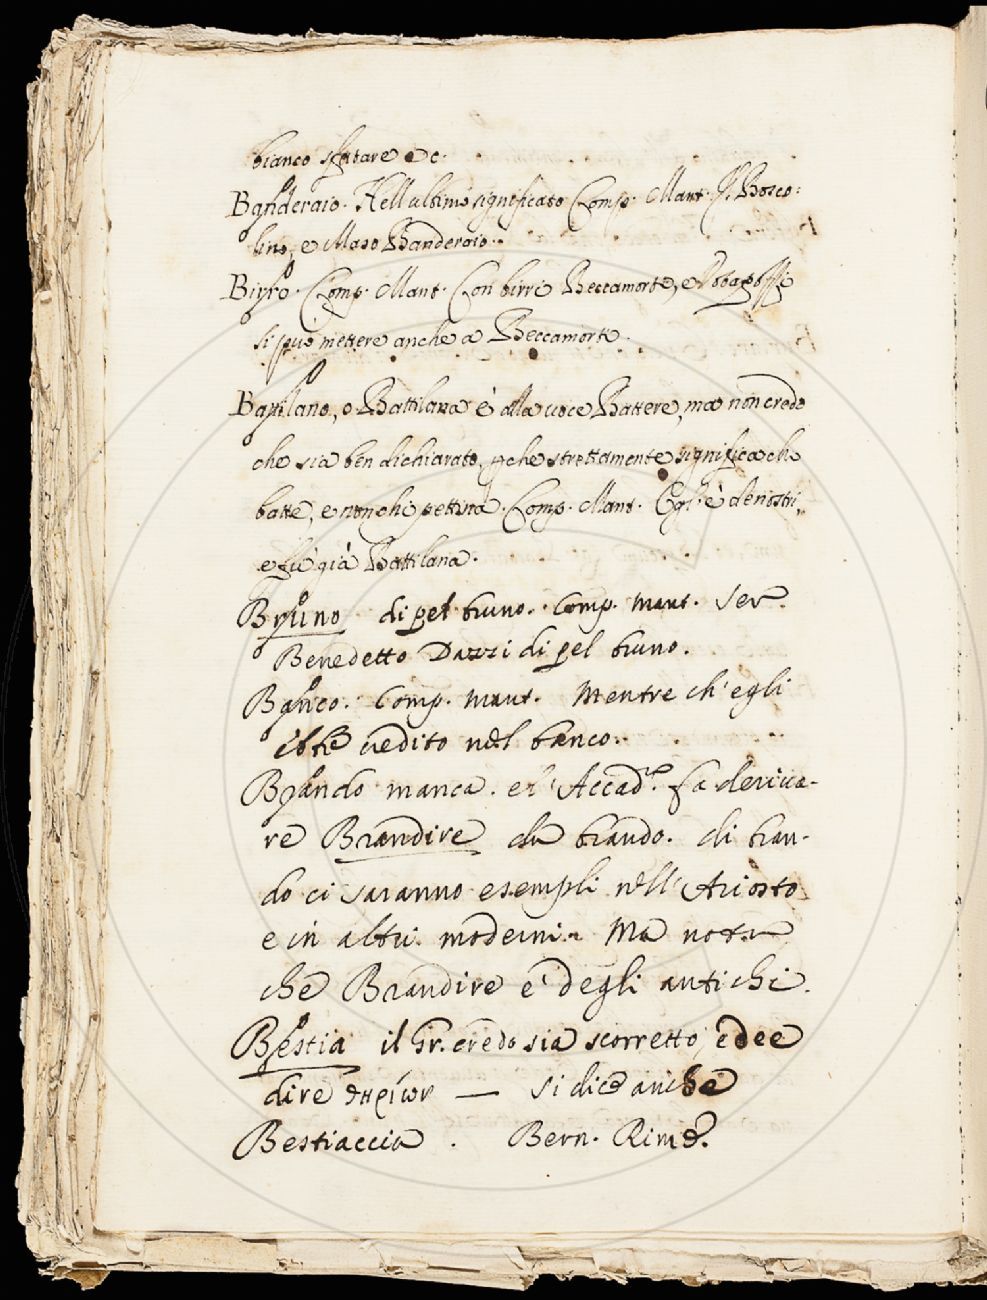 bianco sfatare ec.
Banderaio. Nell ultimo significato Comp. Mant. Il Bosco:
lino, e Maso Banderaio.
Birro. Comp. Mant. Con birri Beccamorti, e
si puo mettere anche a Beccamorti.
Battilano, o Battilana è alla voce Battere, ma non credo
che sia ben dichiarato, pche strettamente significa chi
batte, e non chi pettina. Comp. Mant. Egl' è de nostri,
e fu già Battilana.
Bruno di pel bruno. Comp. Mant. Ser
Benedetto Dazzi di pel bruno.
Banco. Comp. Mant. Mentre ch' egli
credito nel banco.
Brando manca. e l' Accad.ᵃ fa deriva-
re Brandire da brando. di bran-
do ci saranno esempli nell' Ariosto
e in altri moderni. Ma
che Brandire è degli antichi.
Bestia il Gr. credo sia scorretto, e dee
dire θηρίων — si dice anche
Bestiaccia. Bern. Rime.